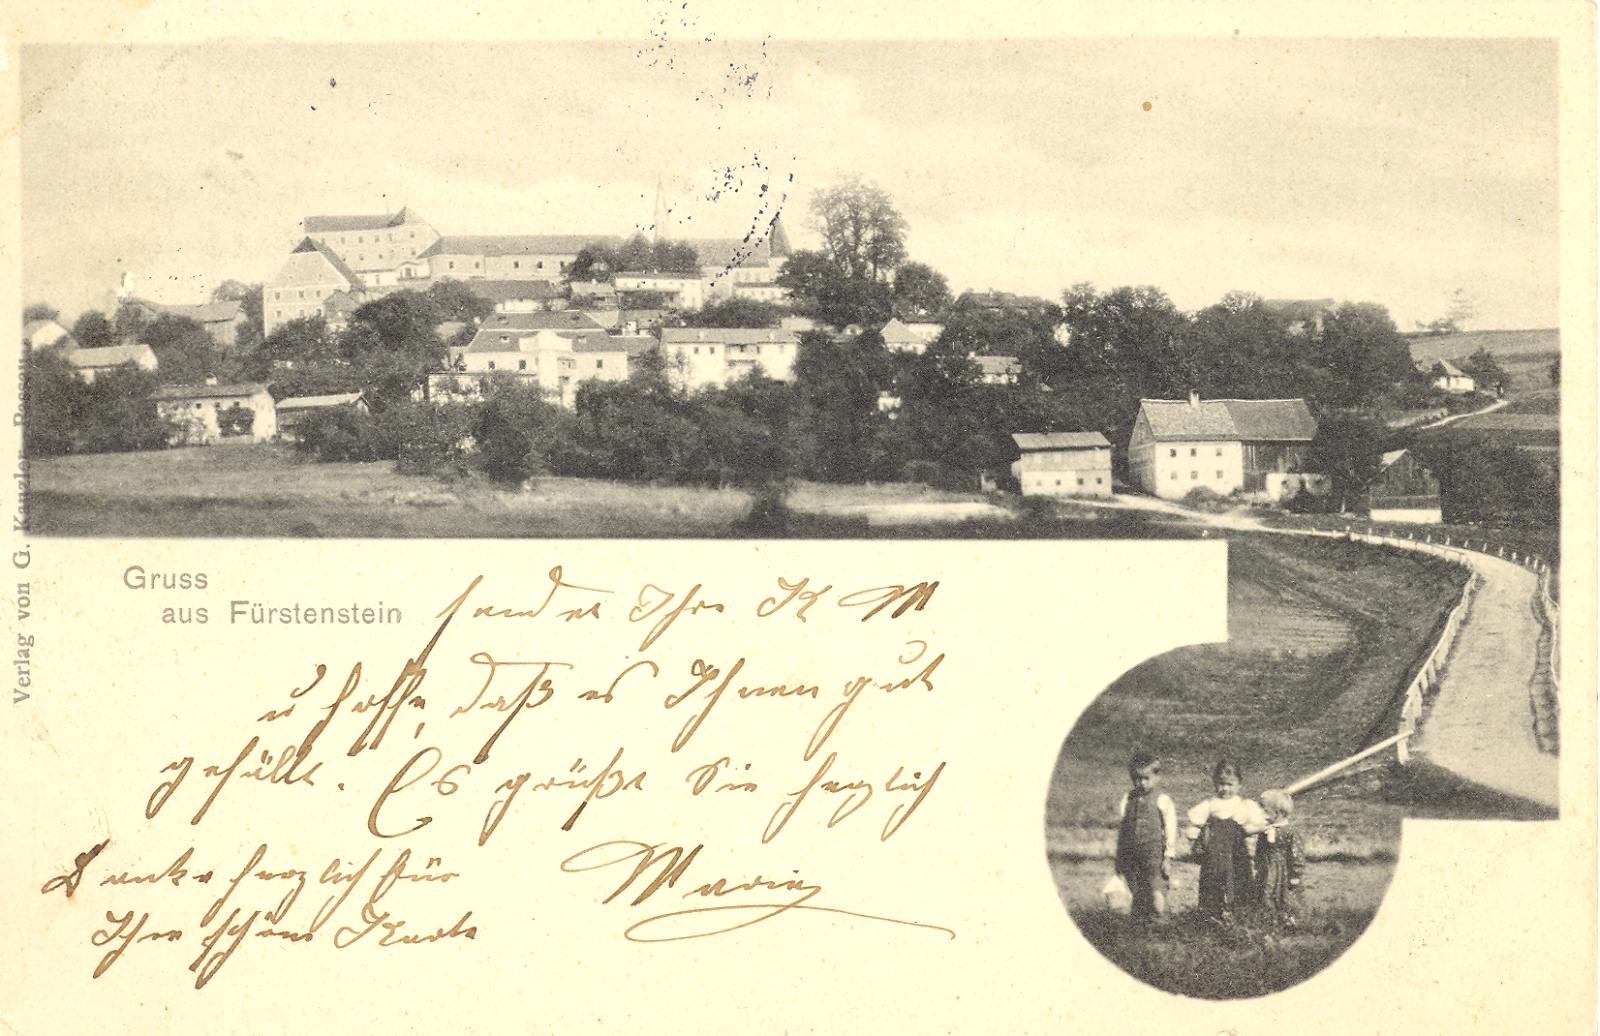 Gruss
aus Fürstenstein
sendet Ihre K M
u hoffe, daß es Ihnen gut
gefällt. Es grüßt Sie herzlich
Marie
Danke herzlich für
Ihre schöne Karte
Verlag von G. Kanzler, Passau